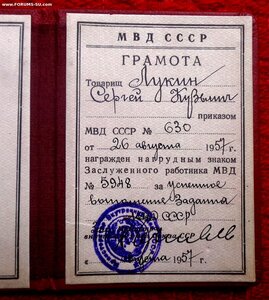 www.FORUMS-SU.com
МВД СССР
ГРАМОТА
Товарищ Лукин
Сергей Кузьмич
приказом
МВД СССР № 630
от 26 августа 1957г.
награжден нагрудным знаком
Заслуженного работника МВД
№ 5948 за успешное
выполнение задач
СССР
августа 1957г.